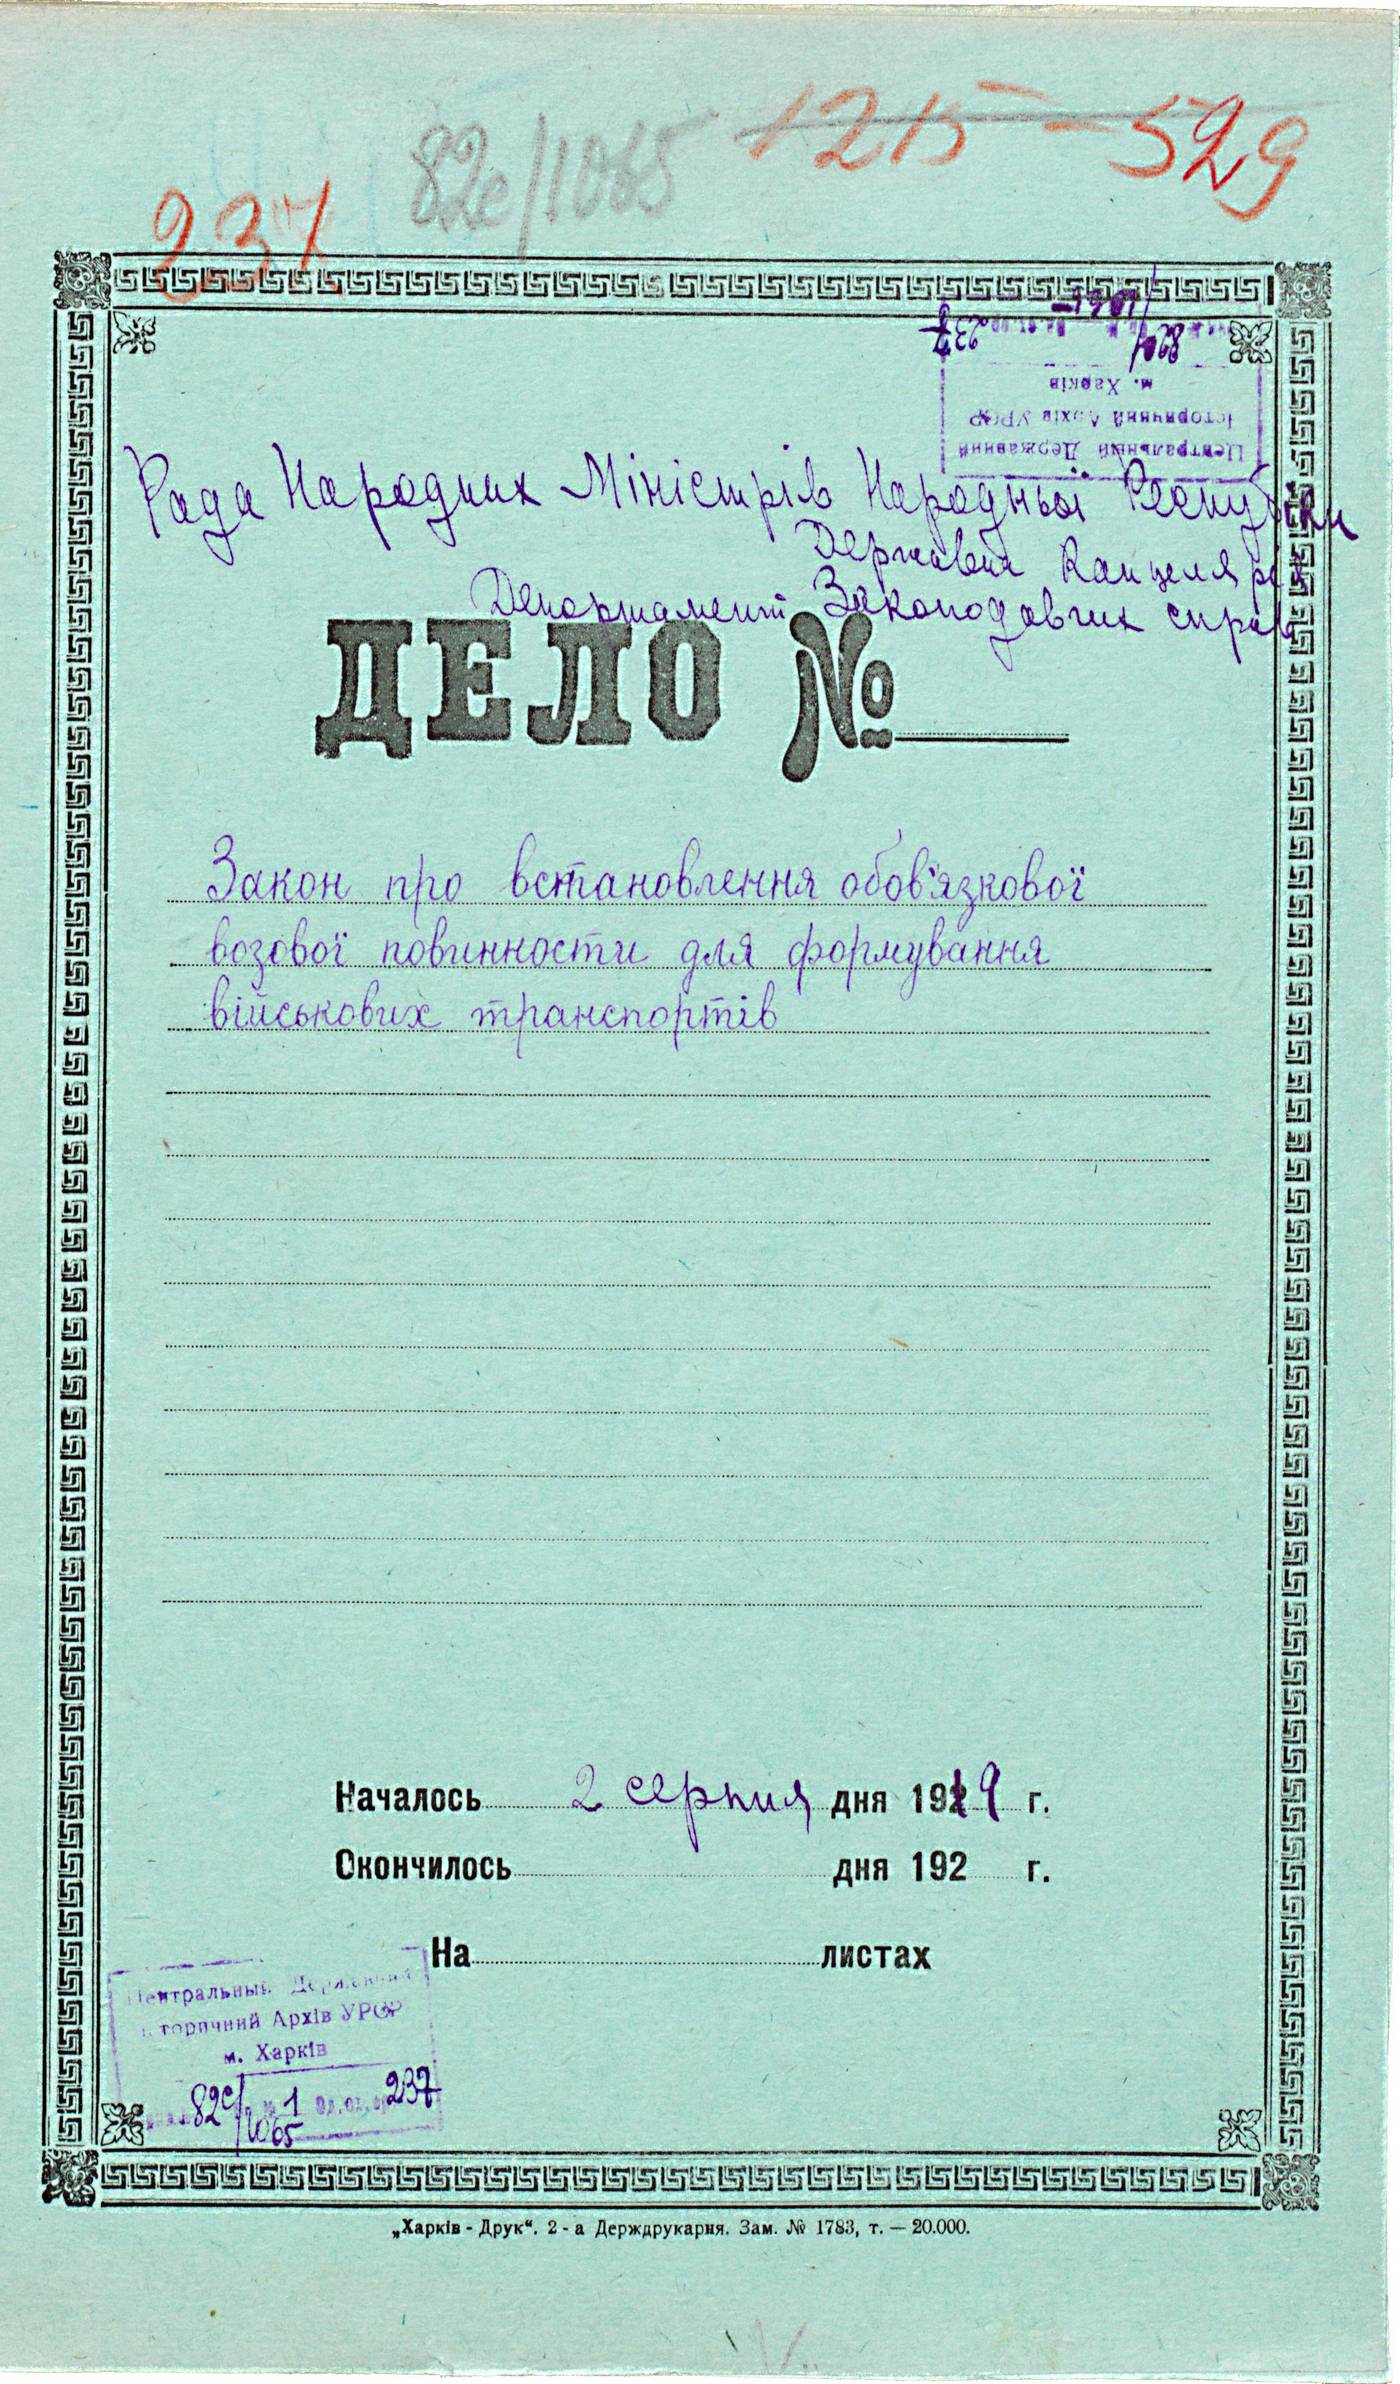 1215 - 529
82е/1065
237
Центральный Державний
Історичний Архів УРСР
м. Харків
82е/1065 237
Рада Народних Міністрів Народньої Республіки
Державна Канцелярія
Департамент Законодавчих справ
ДЕЛО №
Закон про встановлення обов'язкової
возової повинности для формування
військових транспортів
Началось 2 серпня дня 1919 г.
Окончилось дня 192 г.
На листах
Центральный Державний
Історичний Архів УРСР
м. Харків
82е/1065 № 1 Од. сх. 237
„Харків - Друк“. 2 - а Держдрукарня. Зам. № 1783, т. — 20.000.